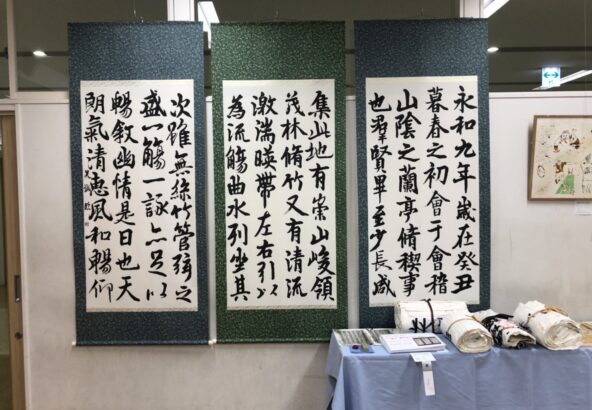 永和九年歳在癸丑
暮春之初會于會稽
山陰之蘭亭脩稧事
也羣賢畢至少長咸
集此地有崇山峻領
茂林脩竹又有清流
激湍暎帶左右引以
為流觴曲水列坐其
次雖無絲竹管弦之
盛一觴一詠亦足以
暢叙幽情是日也天
朗氣清恵風和暢仰